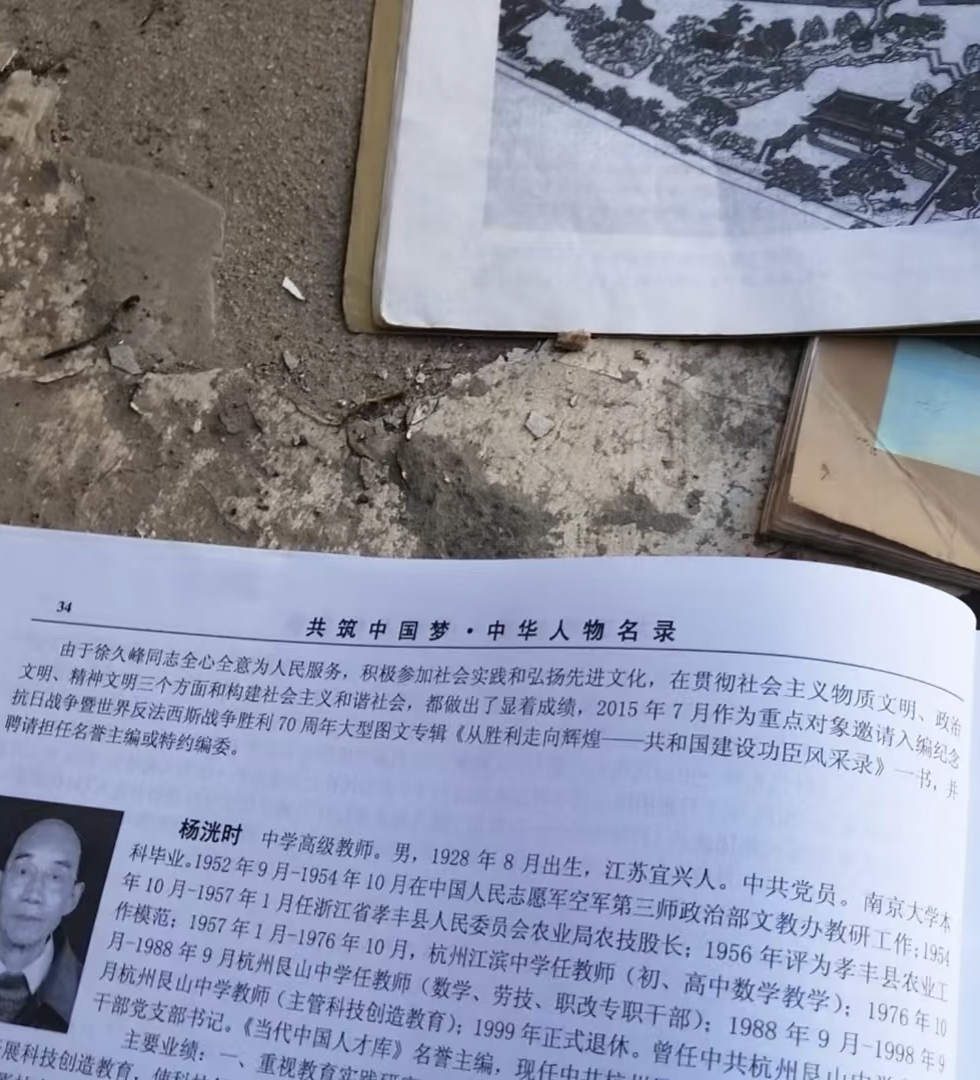 34
共筑中国梦·中华人物名录
由于徐久峰同志全心全意为人民服务，积极参加社会实践和弘扬先进文化，在贯彻社会主义物质文明、政治
文明、精神文明三个方面和构建社会主义和谐社会，都做出了显着成绩，2015年7月作为重点对象邀请入编纪念
抗日战争暨世界反法西斯战争胜利70周年大型图文专辑《从胜利走向辉煌——共和国建设功臣风采录》一书，并
聘请担任名誉主编或特约编委。
杨洸时 中学高级教师。男，1928年8月出生，江苏宜兴人。中共党员。南京大学本
科毕业。1952年9月-1954年10月在中国人民志愿军空军第三师政治部文教办教研工作；1954
年10月-1957年1月任浙江省孝丰县人民委员会农业局农技股长；1956年评为孝丰县农业工
作模范；1957年1月-1976年10月，杭州江滨中学任教师（初、高中数学教学）；1976年10
月-1988年9月杭州艮山中学任教师（数学、劳技、职改专职干部）；1988年9月-1998年9
月杭州艮山中学教师（主管科技创造教育）；1999年正式退休。曾任中共杭州艮山中学
干部党支部书记。《当代中国人才库》名誉主编，现任中共杭州
主要业绩：一、重视教育实践研究
展科技创造教育，使科技